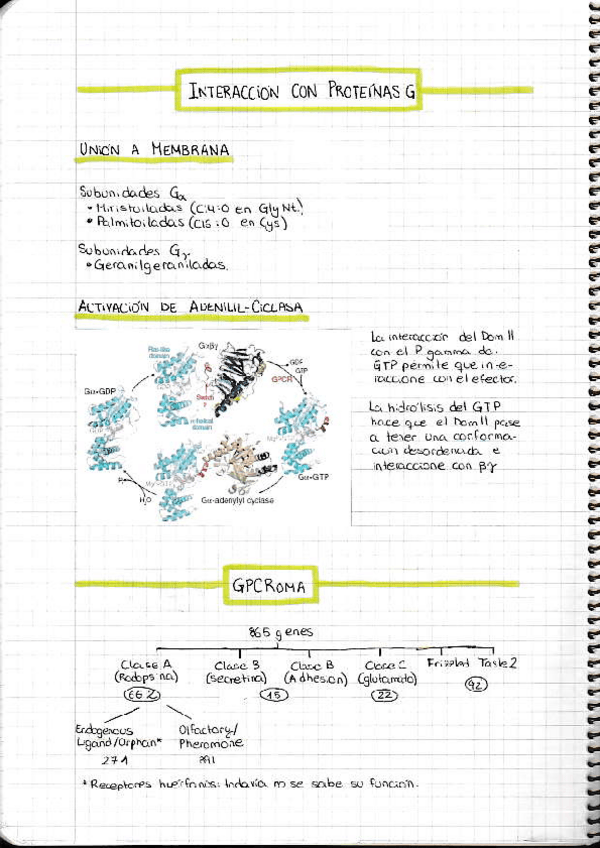 INTERACCIÓN CON PROTEÍNAS G
UNIÓN A MEMBRANA
Subunidades Gα
• Miristoiladas (C14:0 en Gly Nt.)
• Palmitoiladas (C15:0 en Cys)
Subunidades Gγ
• Geranilgeraniladas.
ACTIVACIÓN DE ADENILIL-CICLASA
Ras-like
domain
Gαβγ
GDP
GTP
GPCR
Gα•GDP
Switch
α-helical
domain
Pi
H₂O
Gα•GTP
Gα-adenylyl cyclase
La interacción del Dom II
con el P gamma do.
GTP permite que inte-
raccione con el efector.
La hidrólisis del GTP
hace que el Dom II pase
a tener una conforma-
ción desordenada e
interaccione con βγ
GPCROMA
865 genes
Clase A
(Rodopsina)
662
Clase B
(secretina)
15
Clase B
(Adhesion)
Clase C
(glutamato)
22
Frizzled Taste2
92
Endogenous
Ligand/Orphan*
271
Olfactory/
Pheromone
391
* Receptores huérfanos: todavía no se sabe su función.